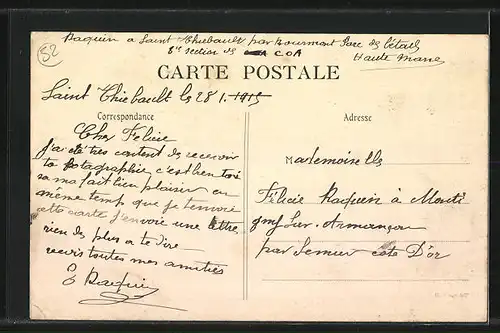 52
Raquin a Saint Thiebault par Bourmont Parc de bétail
8e section de COA
Haute Marne
CARTE POSTALE
Saint Thiebault le 28 1. 1915
Correspondance
Adresse
Cher Felicie
j'ai été tres content de recevoir
ta fotographie c'est bien toi
sa ma fait bien plaisir en
même temp que je t'envoie
cette carte j'envoie une lettre
rien de plus a te dire
recois toutes mes amitiés
Raquin
Mademoiselle
Félicie Raquin à Monti
gny Sur. Armançon
par Semur cote D'or